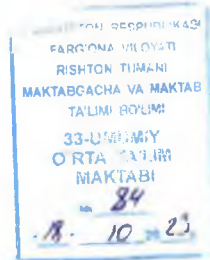 RESPUBLIKASI
FARG'ONA VILOYATI
RISHTON TUMANI
MAKTABGACHA VA MAKTAB
TA'LIMI BO'LIMI
33-UMUMIY
O'RTA TA'LIM
MAKTABI
№ 84
18. 10 23